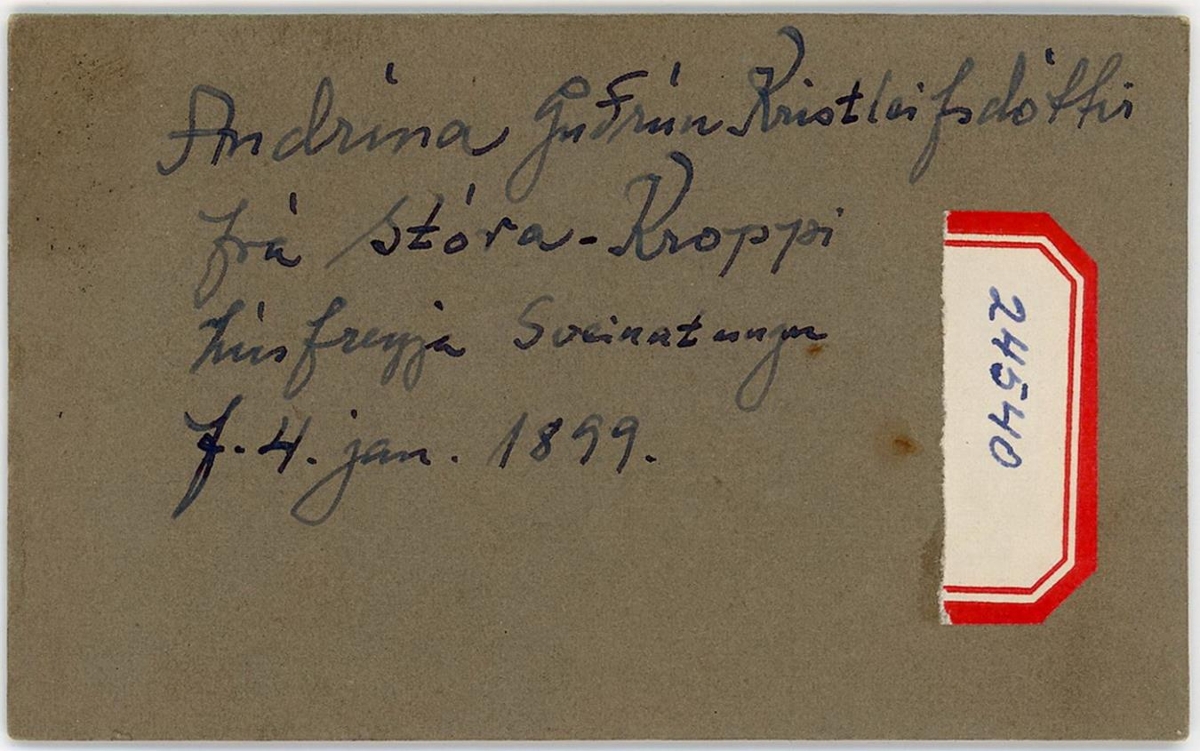 Andrína Guðrún Kristleifsdóttir
frá Stóra-Kroppi
húsfreyja Sveinatungu
f. 4. jan. 1899.
24540